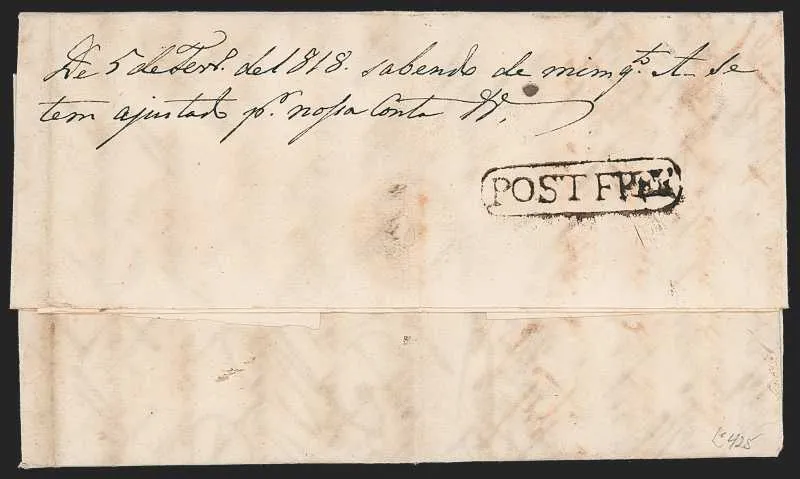 De 5 de Ferl. del 1818. sabendo de mim q.to A- se
tem ajustado p.r nossa Conta
POST FREI
425